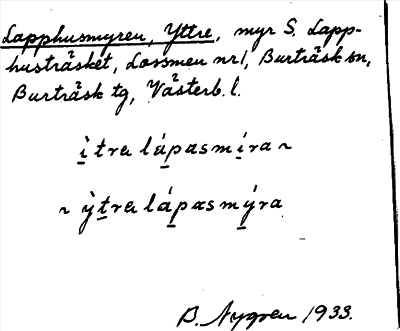 Lapphusmyren, Yttre, myr S. Lapp-
husträsket, Lovsmen nr 1, Burträsk sn,
Burträsk tg, Västerb. l.
ì̱ tra láp̱asmí̱ra ~
~ ỳṯra láp̱asmý̱ra
B. Nygren 1933.